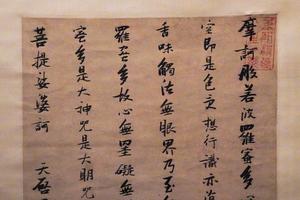 摩訶般若波羅蜜多
空即是色受想行識亦
香味觸法無眼界乃至
羅蜜多故心無罣礙無
蜜多是大神咒是大明咒
菩提娑婆訶 天啓